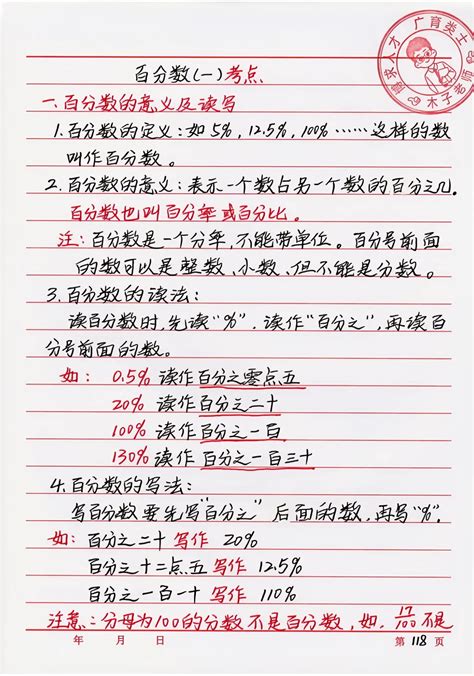 广育类士
求人才
木子老师
百分数(一)考点
一.百分数的意义及读写
1.百分数的定义:如5%,12.5%,100%……这样的数
叫作百分数。
2.百分数的意义:表示一个数占另一个数的百分之几.
百分数也叫百分率或百分比。
注:百分数是一个分率,不能带单位。百分号前面
的数可以是整数、小数,但不能是分数。
3.百分数的读法:
读百分数时,先读"%",读作"百分之",再读百
分号前面的数。
如: 0.5% 读作百分之零点五
20% 读作百分之二十
100% 读作百分之一百
130% 读作百分之一百三十
4.百分数的写法:
写百分数要先写"百分之"后面的数,再写"%".
如: 百分之二十 写作 20%
百分之十二点五 写作 12.5%
百分之一百一十 写作 110%
注意:分母为100的分数不是百分数,如.17/100不是
年 月 日 第 118 页